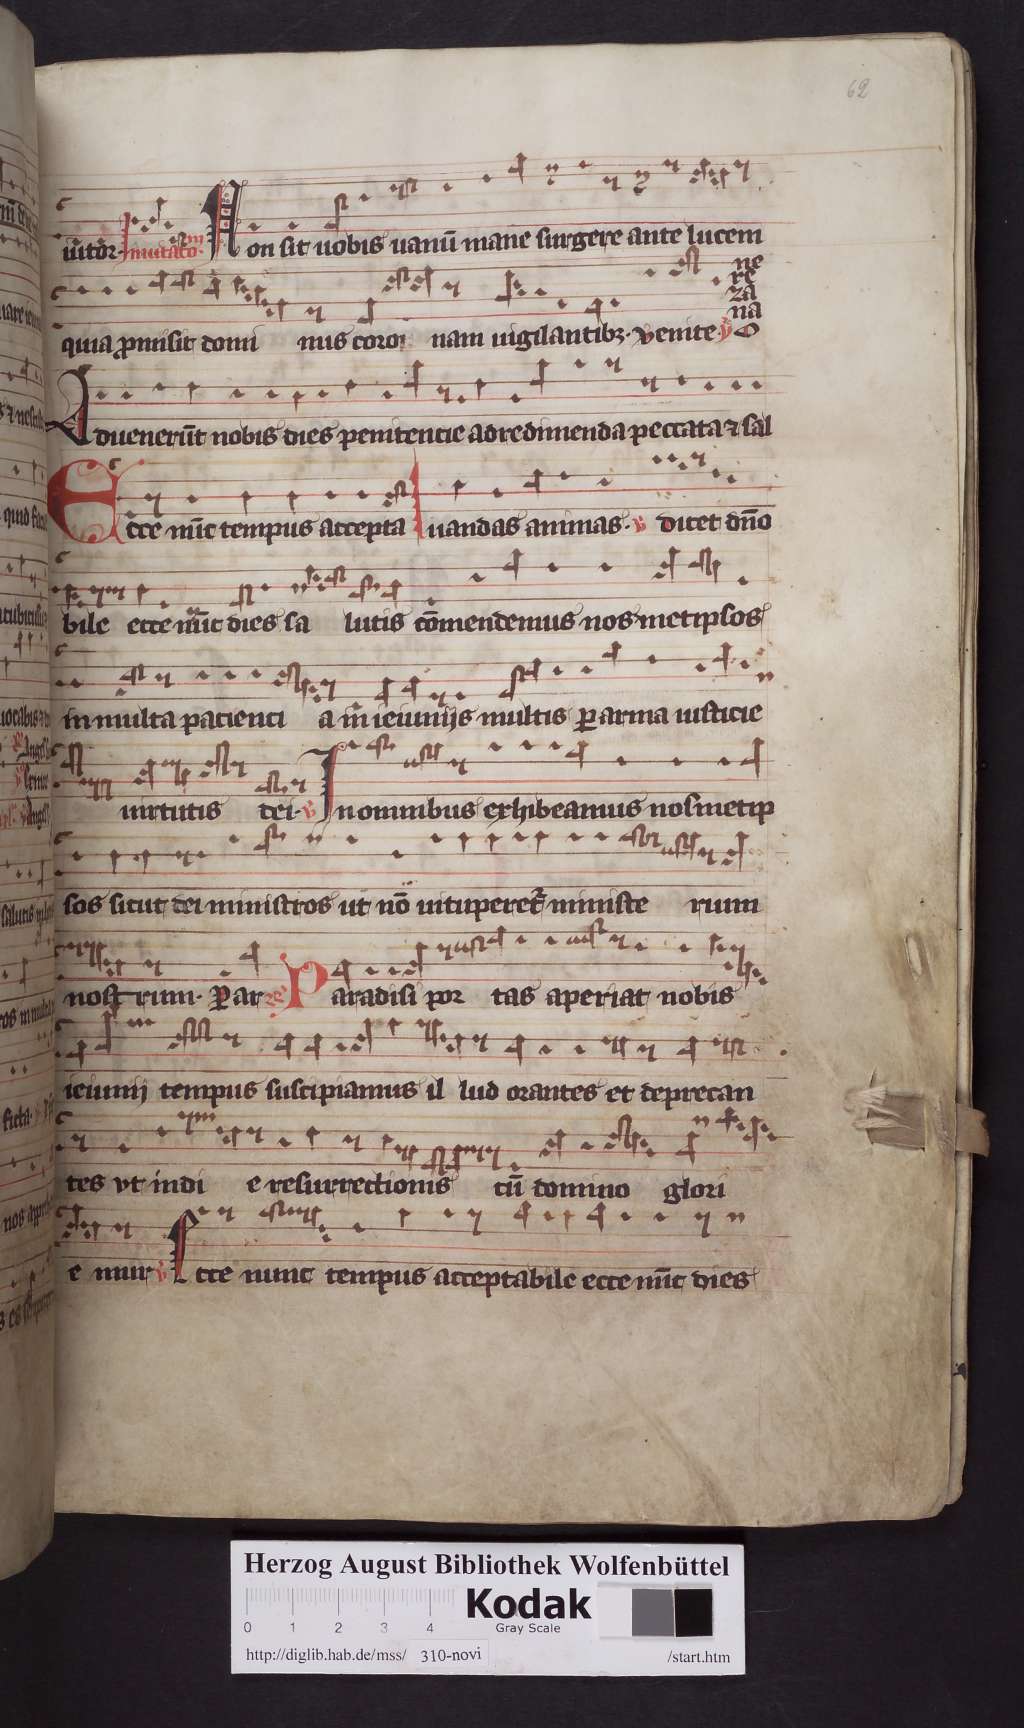 62
uitor· Inuitatorm Non sit uobis uanū mane surgere ante lucem
quia ꝓmisit domi nus coro nam uigilantibꝫ· venite ꝟ
ne
re
za
na
o
Aduenerūt nobis dies penitencie ad redimenda peccata ⁊ sal
Ecce nūc tempus accepta uandas animas· ꝟ dicet dn̄o
bile ecce nūc dies sa lutis cōmendemus nosmetipsos
in multa pacienci a in ieiunijs multis ꝑ arma iusticie
uirtutis dei· ꝟ In omnibus exhibeamus nosmetip
sos sicut dei ministros ut nō uituperet᷑ ministe rium
nost rum· Ꝑ ar Paradisi por tas aperiat nobis
ieiunij tempus suscipiamus il lud orantes et deprecan
tes vt indi e resurrectionis cū domino glori
e mur ꝟ Ecce nunc tempus acceptabile ecce nūc dies
Herzog August Bibliothek Wolfenbüttel
0 1 2 3 4
Kodak
Gray Scale
http://diglib.hab.de/mss/ 310-novi /start.htm